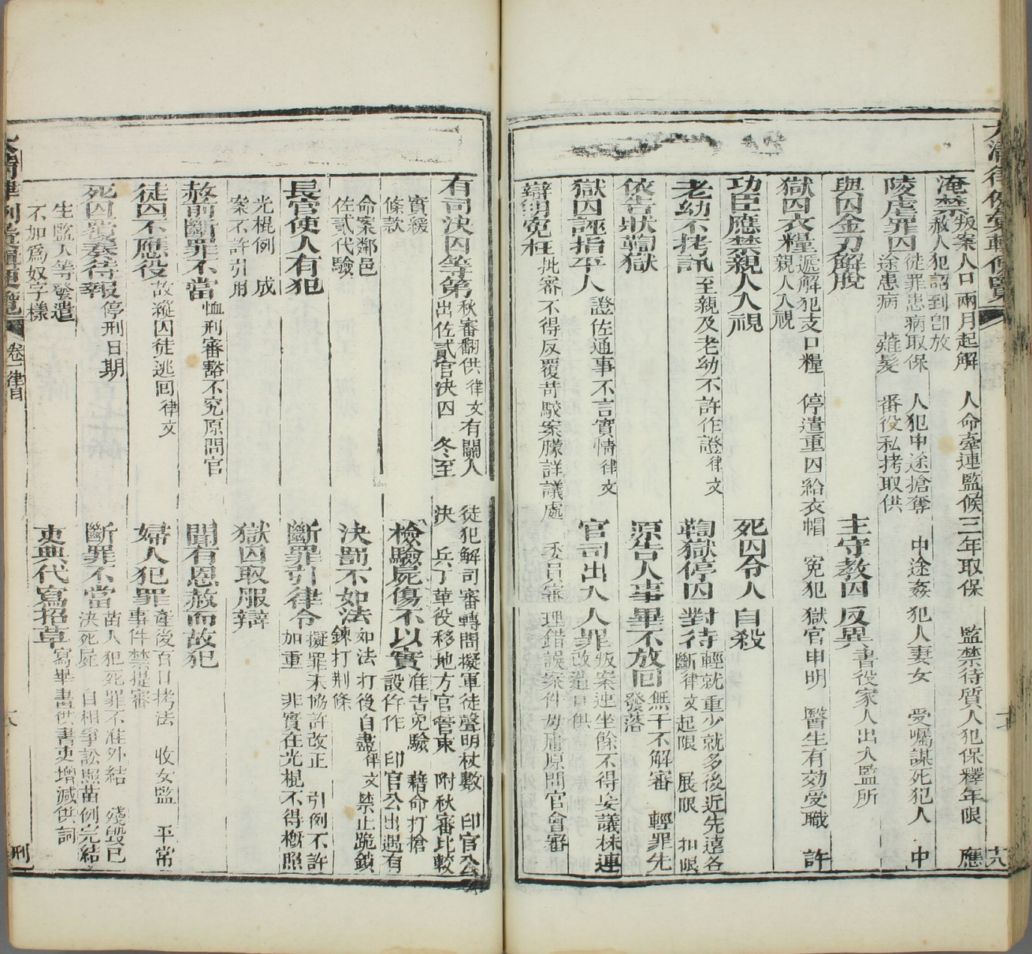 淹禁 叛案人口兩月起解 人命牽連監候三年取保 監禁待質人犯保釋年限 應
赦人犯詔到卽放
陵虐罪囚 徒罪患病取保 人犯中途搶奪 中途姦犯人妻女 受囑謀死犯人 中
途患病 薙髮 番役私拷取供
與囚金刃解脫 主守教囚反異 書役家人出入監所
獄囚衣糧 遞解犯支口糧 停遣重囚給衣帽 冤犯獄官申明 醫生有効受職 許
親人入視
功臣應禁親人入視 死囚令人自殺
老幼不拷訊 至親及老幼不許作證律文 鞫獄停囚對待 輕就重少就多後近先遠各
斷律文 起限 展限 扣限
依告狀鞫獄 原告人事畢不放回 無干不解審 輕罪先
發落
獄囚誣指平人 證佐通事不言實情律文 官司出入人罪 叛案連坐餘不得妄議株連
改造口供
辯明冤枉 批審不得反覆苛駁案牘詳議處 委員審理錯誤案件毋庸原問官會審
有司決囚等第 秋審翻供律文有關人 徒犯解司審轉問擬軍徒聲明杖數 印官公
出佐貳官決囚 冬至 決 兵丁華役移地方官管束 附秋審比較
實緩 檢驗屍傷不以實 准告免驗 藉命打搶
條款 設仵作 印官公出遇有
命案鄰邑 決罰不如法 如法打後自盡律文 禁止跪鎖
佐貳代驗 鍊打荆條
長官使人有犯 斷罪引律令 擬罪末協許改正 引例不許
加重 非實在光棍不得槪照
光棍例 成 獄囚取服辯
案不許引用
赦前斷罪不當 恤刑審豁不究原問官 聞有恩赦而故犯
徒囚不應役 故縱囚徒逃回律文 婦人犯罪 產後百日拷法 收女監 平常
事件禁提審
死囚覆奏待報 停刑日期 斷罪不當 苗人犯死罪不准外結 殘毀已
決死屍 自相爭訟照苗例完結
生監人等發遣 吏典代寫招草 寫畢書供書吏增減供詞
不加爲奴字樣
卷一律目
刑